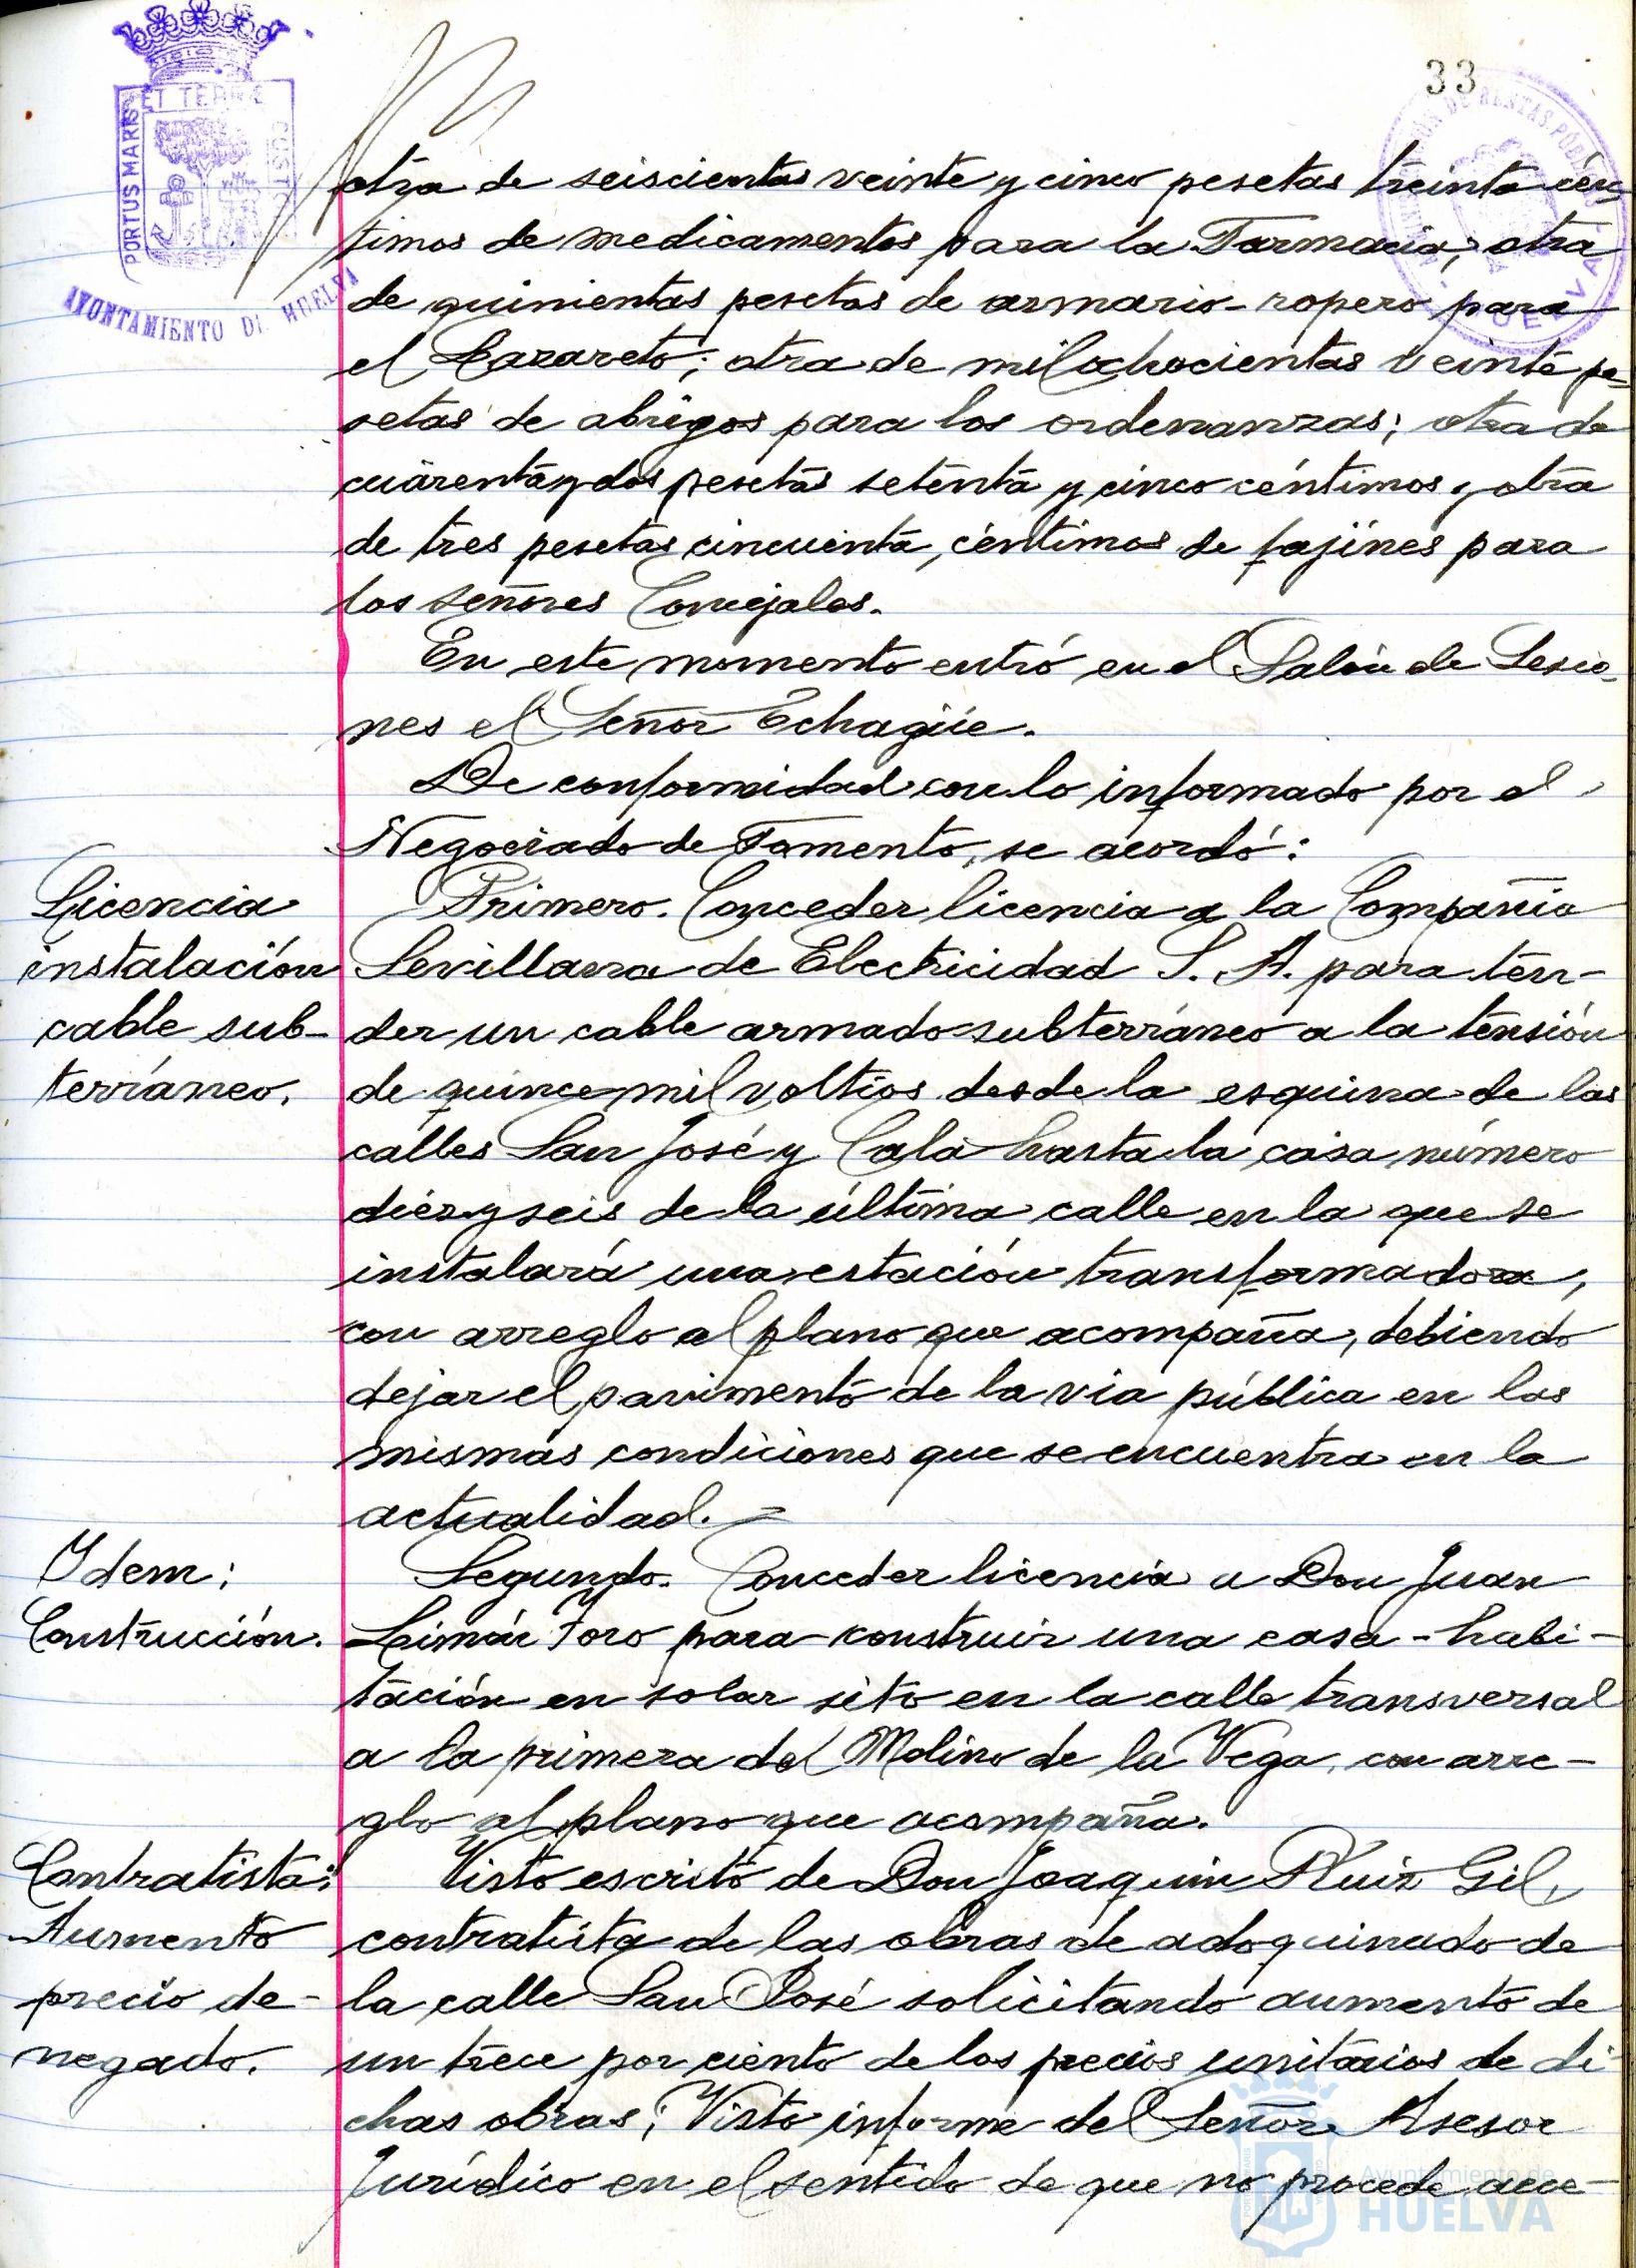 33
PORTUS MARIS ET TERRÆ CUSTO
AYUNTAMIENTO DE HUELVA
otra de seiscientas veinte y cinco pesetas treinta cén
timos de medicamentos para la Farmacia; otra
de quinientas pesetas de armario-ropero para
el Lazareto; otra de mil ochocientas veinte pe-
setas de abrigos para los ordenanzas; otra de
cuarenta y dos pesetas setenta y cinco céntimos y otra
de tres pesetas cincuenta céntimos de fajines para
los señores Concejales.
En este momento entró en el Salón de Sesio-
nes el Señor Echagüe.
De conformidad con lo informado por el
Negociado de Fomento, se acordó:
Licencia
instalación
cable sub-
terráneo.
Primero. Conceder licencia a la Compañia
Sevillana de Electricidad S. A. para ten-
der un cable armado subterráneo a la tensión
de quince mil voltios desde la esquina de las
calles San José y Cala hasta la casa número
diez y seis de la última calle en la que se
instalará una estación transformadora,
con arreglo al plano que acompaña, debiendo
dejar el pavimento de la via pública en las
mismas condiciones que se encuentra en la
actualidad. =
Idem:
Construcción.
Segundo. Conceder licencia a Don Juan
Limón Toro para construir una casa-habi-
tación en solar sito en la calle transversal
a la primera del Molino de la Vega, con arre-
glo al plano que acompaña.
Contratista:
Aumento
precio de-
negado.
Visto escrito de Don Joaquin Ruiz Gil,
contratista de las obras de adoquinado de
la calle San José solicitando aumento de
un trece por ciento de los precios unitarios de di-
chas obras; Visto informe del Señor Asesor
Jurídico en el sentido de que no procede acce-
Ayuntamiento de
HUELVA